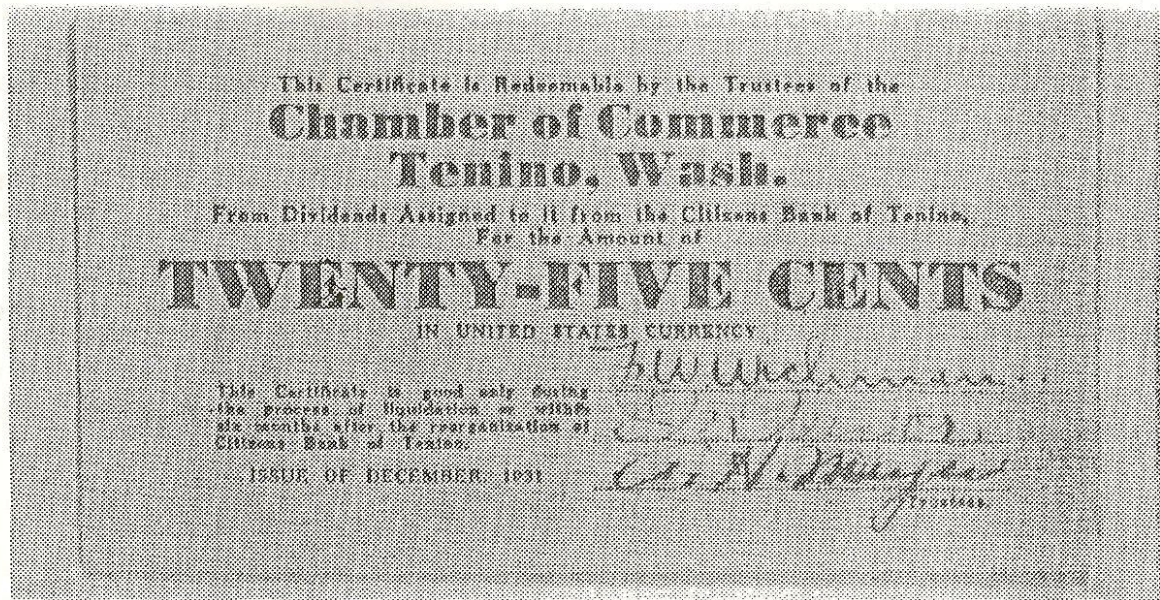 This Certificate is Redeemable by the Trustees of the
Chamber of Commerce
Tenino, Wash.
From Dividends Assigned to it from the Citizens Bank of Tenino,
For the Amount of
TWENTY-FIVE CENTS
IN UNITED STATES CURRENCY
This Certificate is good only during
the process of liquidation or within
six months after the reorganization of
Citizens Bank of Tenino.
ISSUE OF DECEMBER, 1931
Trustees.